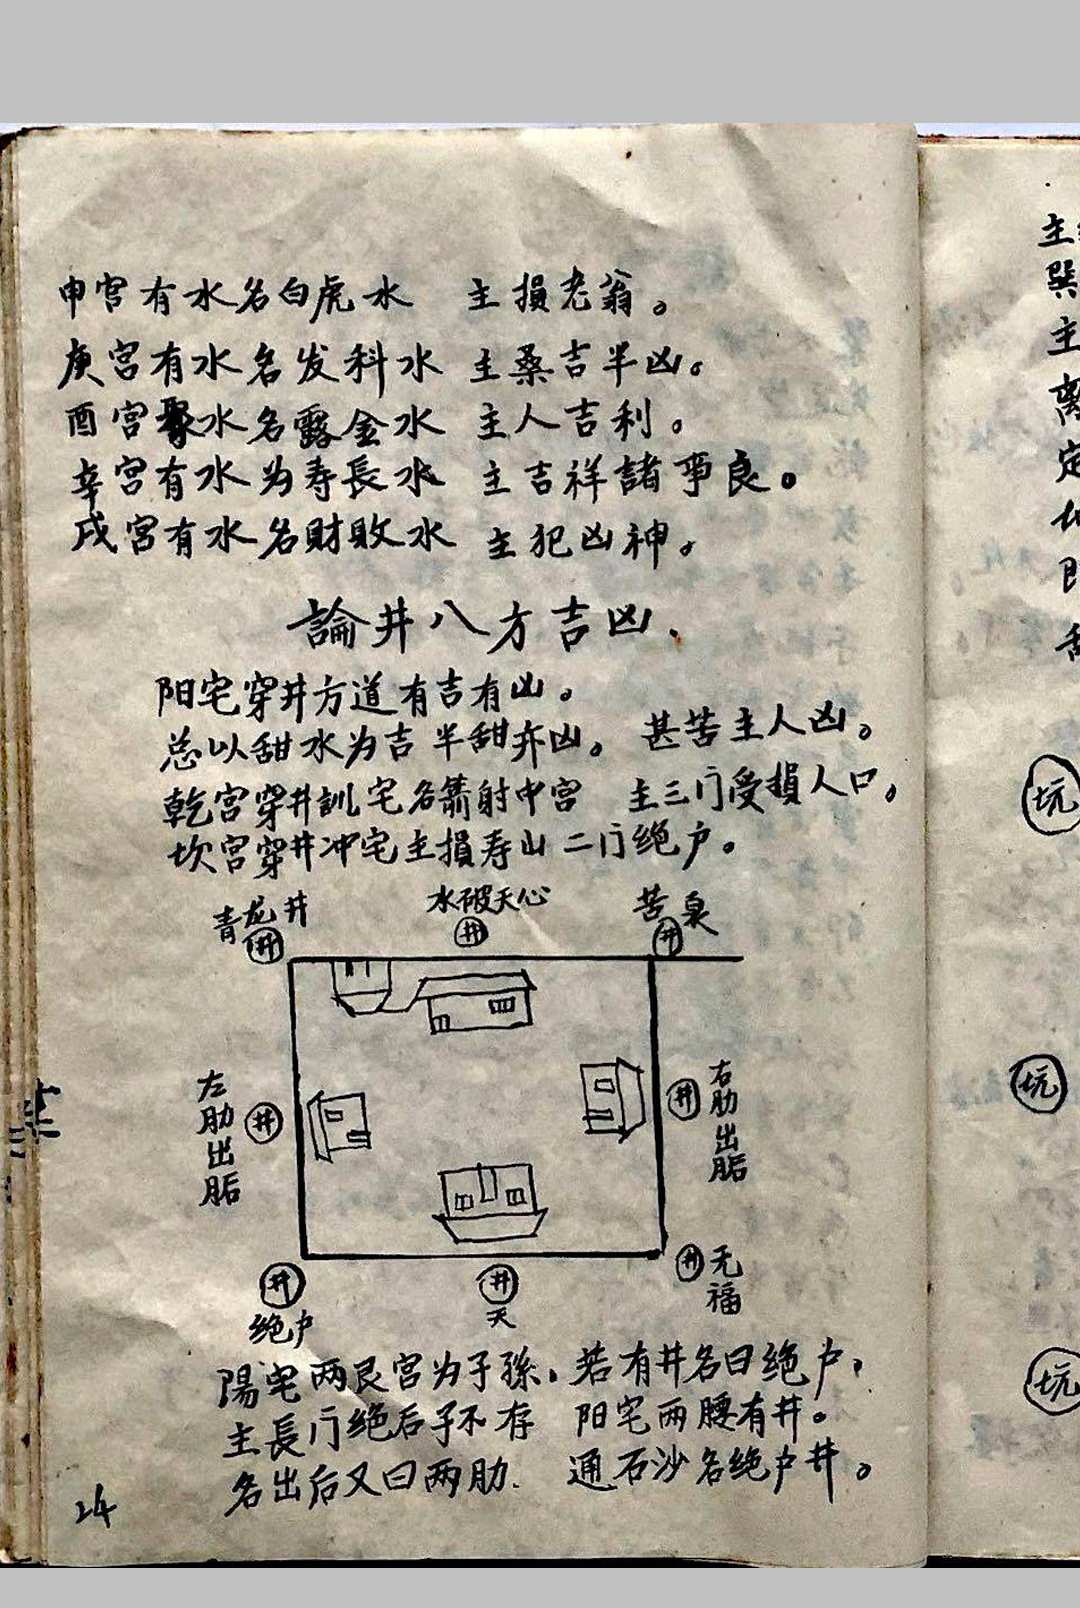 申宫有水名白虎水 主損老翁。
庚宫有水名发科水 主桑吉半凶。
酉宫聚水名露金水 主人吉利。
辛宫有水为寿長水 主吉祥諸事良。
戌宫有水名財敗水 主犯凶神。
論井八方吉凶、
阳宅穿井方道有吉有凶。
总以甜水为吉半甜亦凶。甚苦主人凶。
乾宫穿井訓宅名箭射中宫 主三门受損人口。
坎宫穿井冲宅主損寿山二门绝户。
青龙井 水破天心 苦泉
井 井 井
左肋出 井
井 右肋出
井 井 井 无福
绝户 天
陽宅两艮宫为子孫,若有井名曰绝户,
主長门绝后子不存 阳宅两腰有井。
名出后又曰两肋. 通石沙名绝户井。
24
主
巽
主
离
定
坑
坑
坑